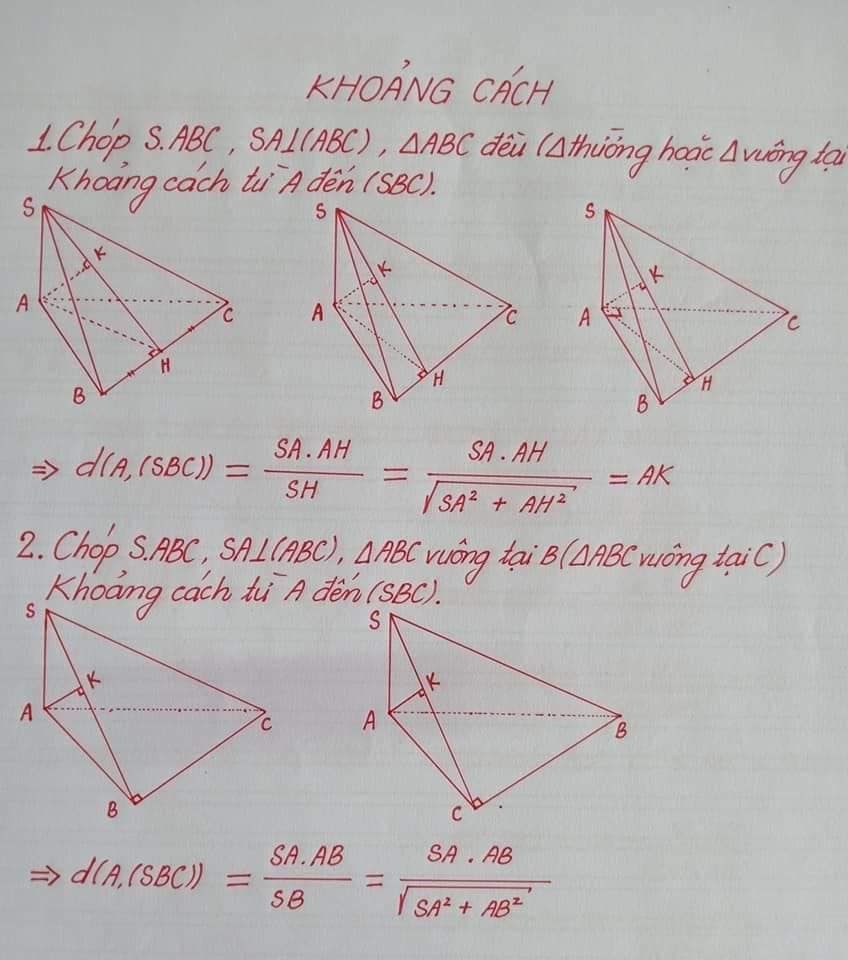 KHOẢNG CÁCH
1. Chóp S.ABC, SA⊥(ABC), ΔABC đều (Δ thường hoặc Δ vuông tại
Khoảng cách từ A đến (SBC).
S K A C H B
S K A C H B
S K A C H B
=> d(A,(SBC)) = SA.AH / SH = SA.AH / √(SA² + AH²) = AK
2. Chóp S.ABC, SA⊥(ABC), ΔABC vuông tại B (ΔABC vuông tại C)
Khoảng cách từ A đến (SBC).
S K A C B
S K A B C
=> d(A,(SBC)) = SA.AB / SB = SA.AB / √(SA² + AB²)